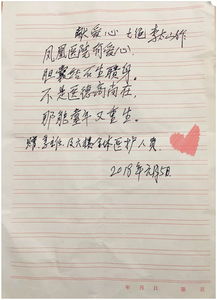 献爱心 七绝 李太山作
凤凰医院刑爱心
胆囊结石生赘身
不是医德高尚在
那能童年又重生
赠 李班及六楼全体医护人员
2018年元月5日
年 月 日 第 页